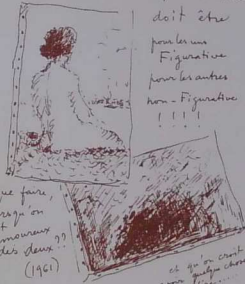 doit être
pour les uns
Figurative
pour les autres
non-Figurative
! ! ! !
que faire,
lorsqu'on
est
amoureux
des deux ??
(1961)
ce qu'on croit
pour quelque chose